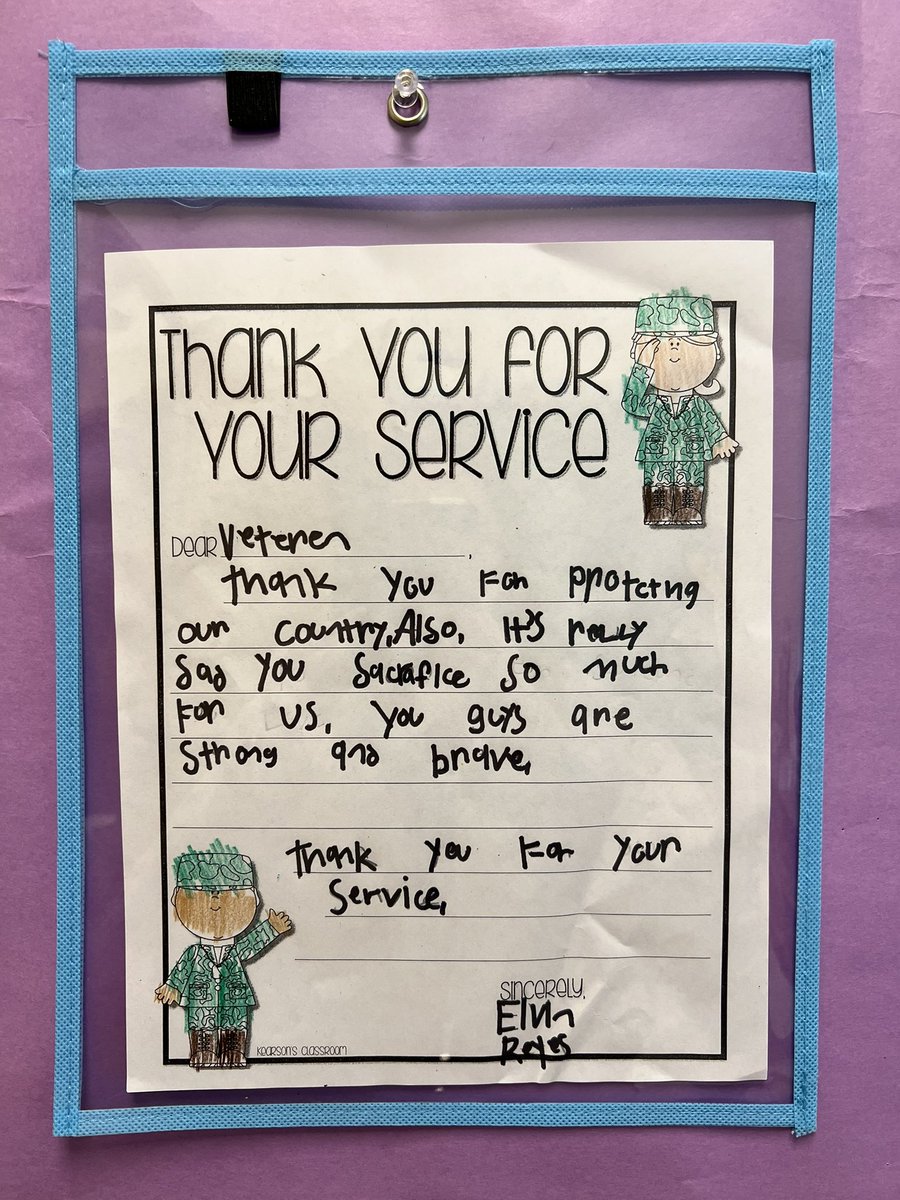 Thank you for
your service
Dear Veteren,
thank you For protctng
our country, Also, It's reully
Sad you Sacrafice So much
For us, you guys are
Strong and brave,
thank you For your
Service,
Sincerely,
Elvin
Reyes
Kearson's Classroom